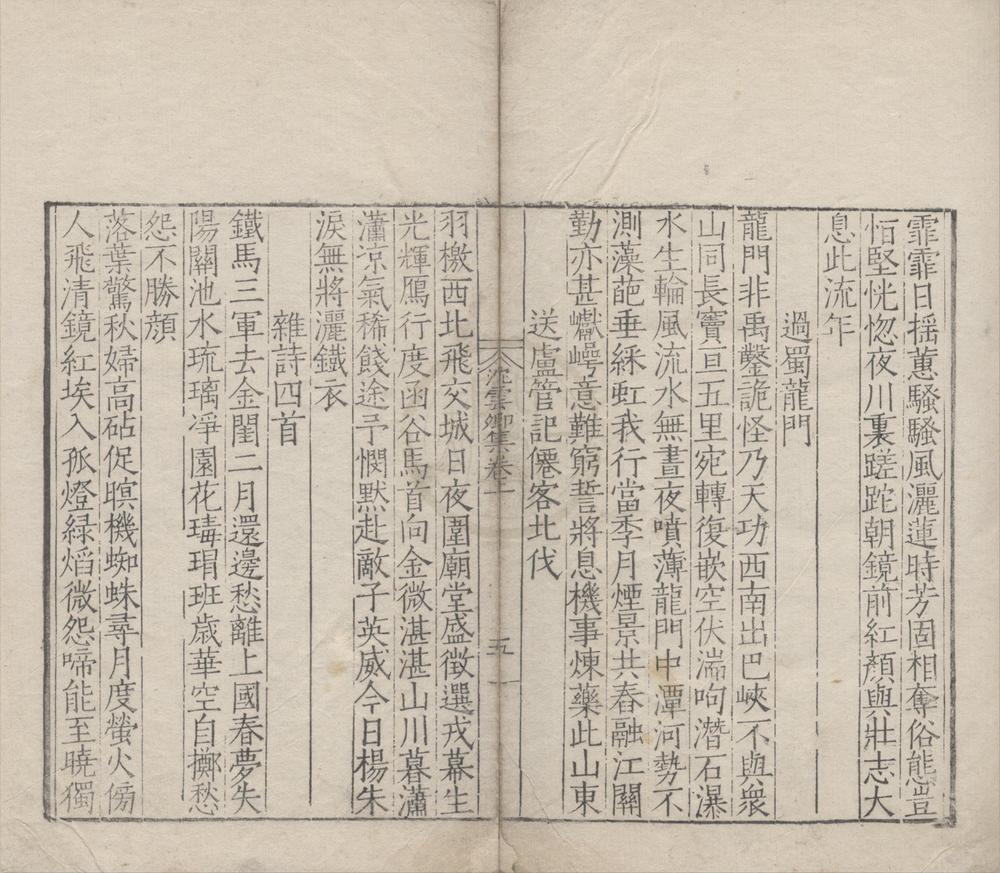 霏霏日揺蕙騷騷風灑蓮時芳固相奪俗態豈
恒堅恍惚夜川裏蹉跎朝鏡前紅顔與壯志太
息此流年
過蜀龍門
龍門非禹鑿詭怪乃天功西南出巴峽不與衆
山同長竇亘五里宛轉復嵌空伏湍呴潛石瀑
水生輪風流水無晝夜噴薄龍門中潭河勢不
測藻葩垂綵虹我行當季月煙景共舂融江關
勤亦甚巘崿意難窮誓將息機事煉藥此山東
送盧管記僊客北伐
沈雲卿集卷一
五
羽檄西北飛交城日夜圍廟堂盛徵選戎幕生
光輝鴈行度函谷馬首向金微湛湛山川暮瀟
瀟涼氣稀餞途予憫默赴敵子英威今日楊朱
淚無將灑鐵衣
雜詩四首
鐵馬三軍去金閨二月還邊愁離上國春夢失
陽關池水琉璃凈園花瑇瑁班歳華空自擲愁
怨不勝顔
落葉驚秋婦高砧促暝機蜘蛛尋月度螢火傍
人飛清鏡紅埃入孤燈緑焰微怨啼能至曉獨